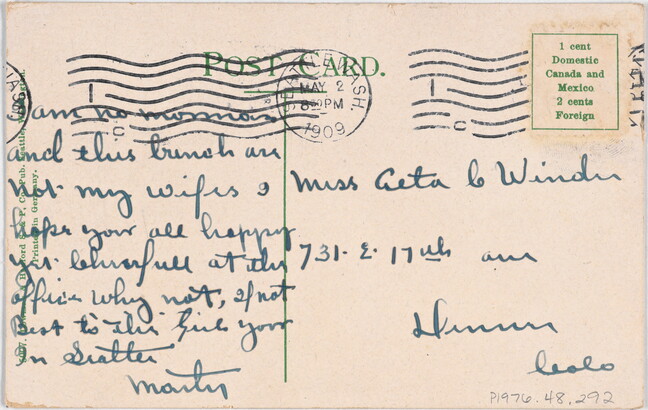 POST CARD.
SEATTLE, WASH.
MAY 2
8 30 PM
1909
1 cent
Domestic
Canada and
Mexico
2 cents
Foreign
am no mormon
and this bunch are
not my wifes I
hope your all happy
yet cheerfull at the
office why not, if not
Best to the Girls your
in Seattle
Martin
Miss Aeta C Winder
731. E. 17th ave
Denver
Colo
Printed in Germany.
P1976.48.292